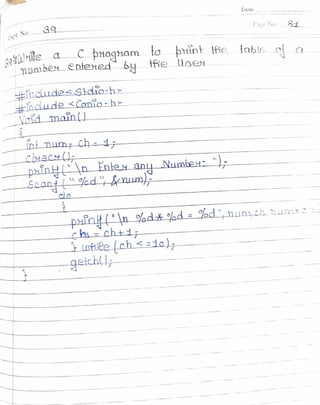 Date
Expt. No. 39
Page No. 81
39 Write a C program to print the table of a
number entered by the User
#include<Stdio.h>
#include<Conio.h>
Void main()
{
int num, ch = 1;
clrscr();
printf("\n Enter any Number: ");
Scanf("%d", &num);
do
{
printf("\n %d*%d = %d", num,ch, num*
ch = ch+1;
} while (ch <=10);
getch();
}